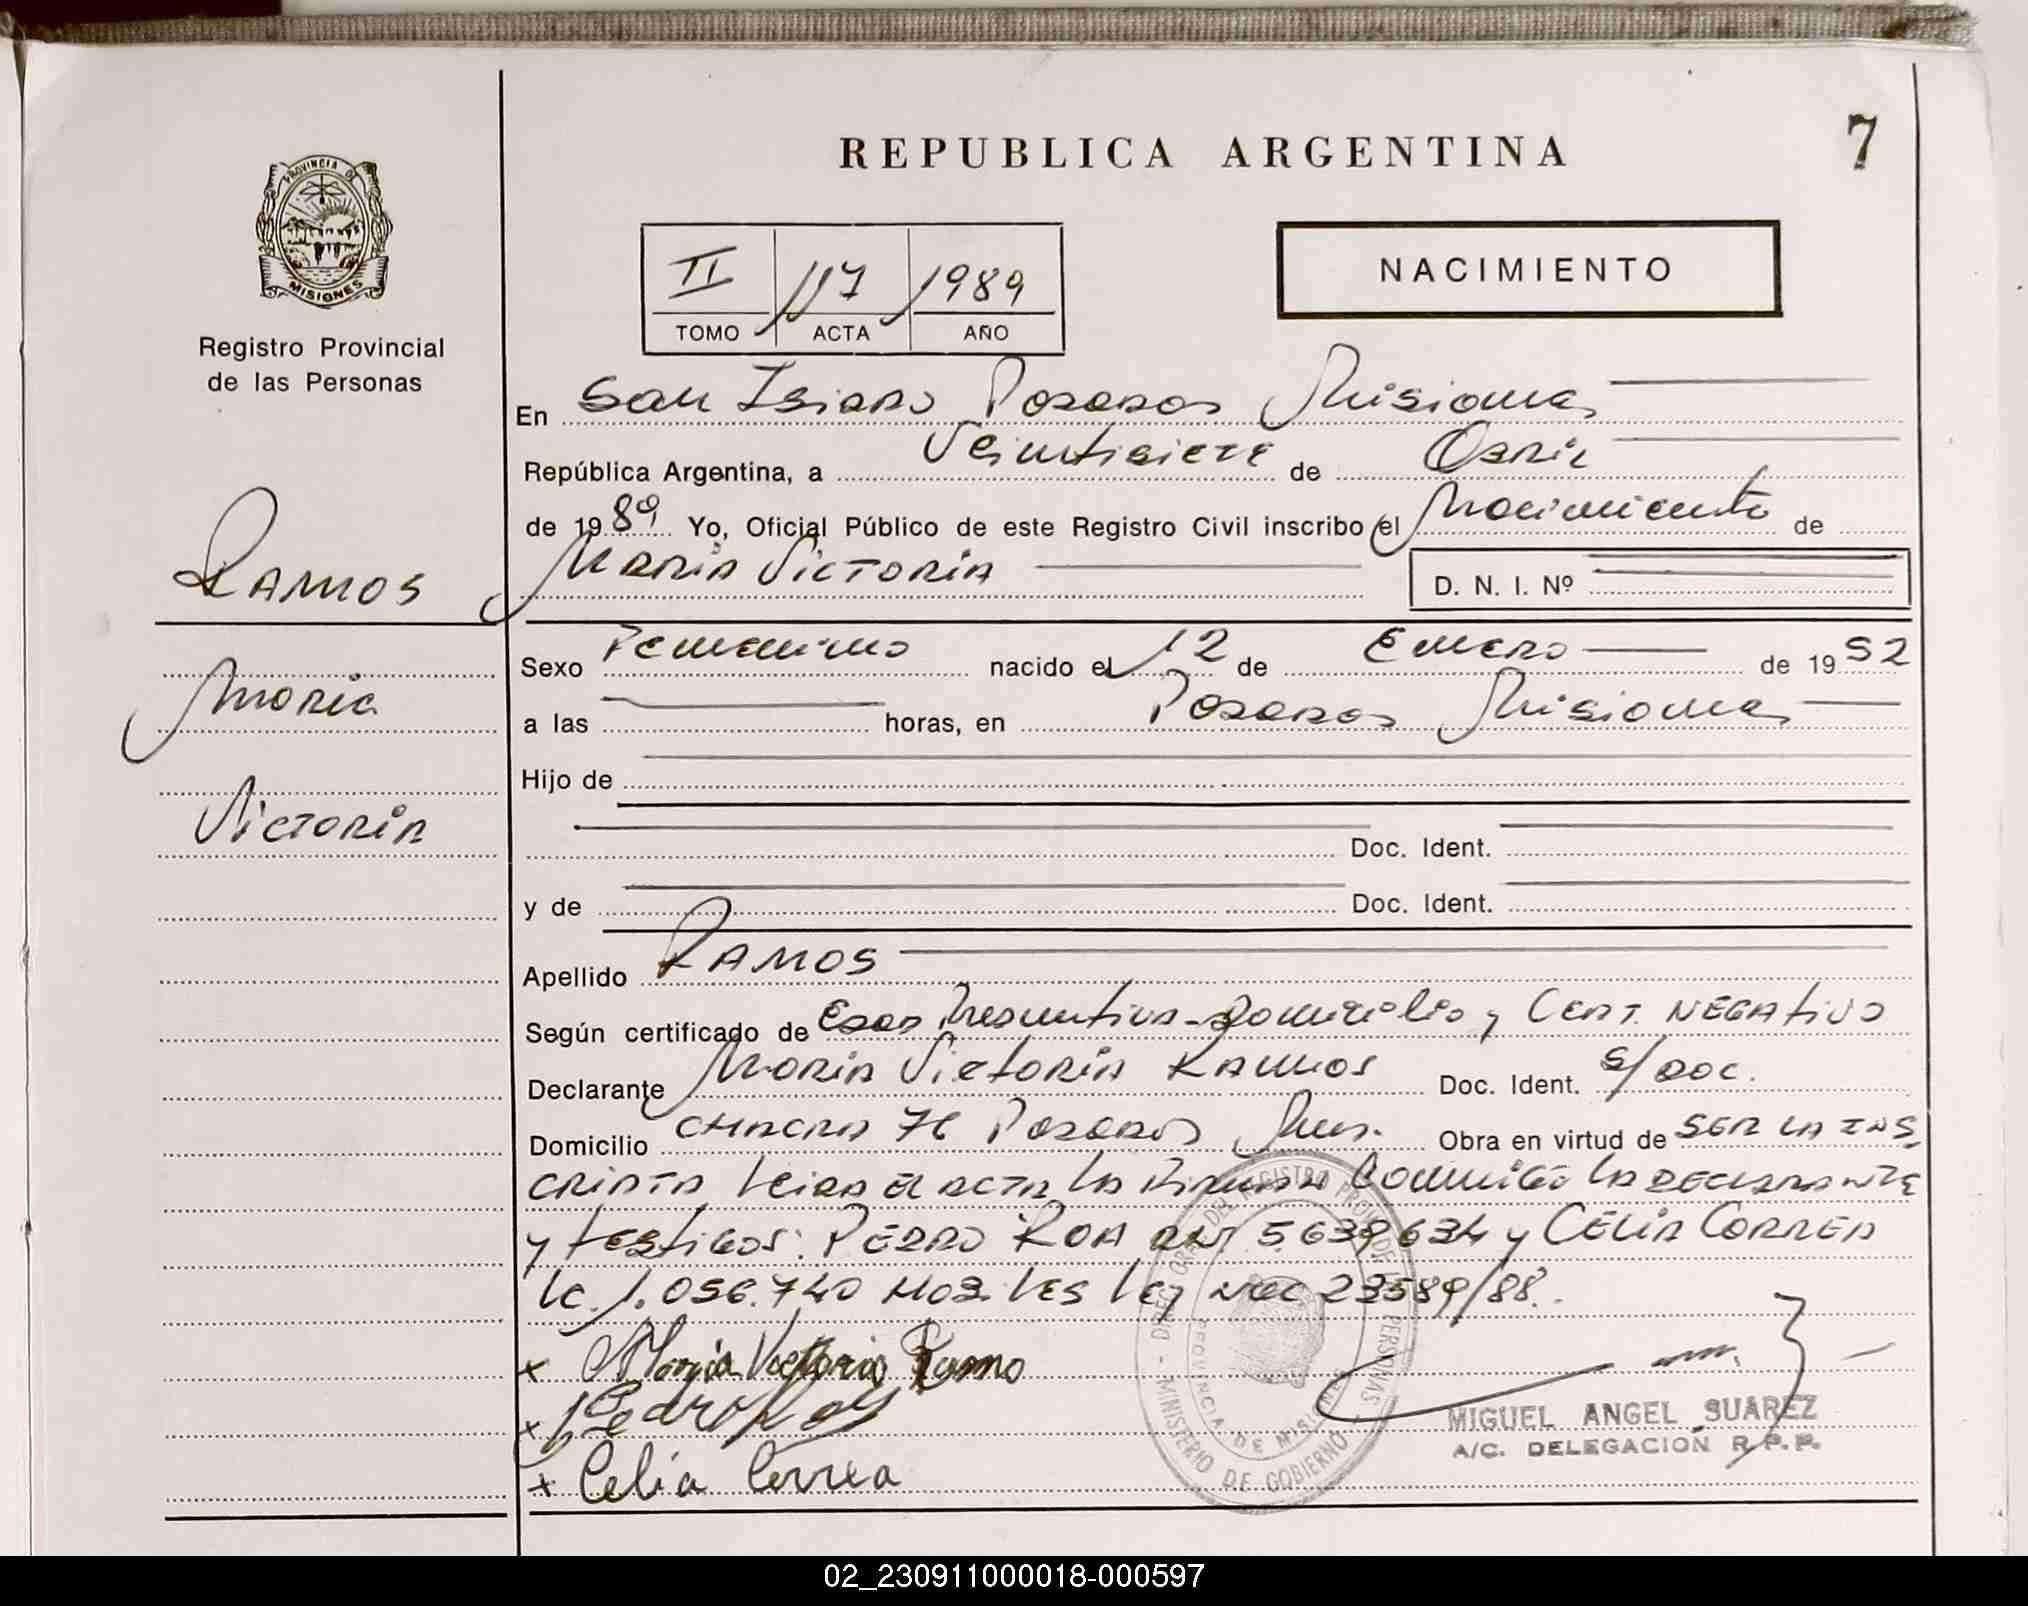 REPUBLICA ARGENTINA
7
PROVINCIA DE
MISIONES
Registro Provincial
de las Personas
II 117 1989
TOMO ACTA AÑO
NACIMIENTO
En San Isidro Posadas Misiones
República Argentina, a Veintisiete de Abril
de 1989 Yo, Oficial Público de este Registro Civil inscribo el Nacimiento de
Maria Victoria D. N. I. Nº
RAMOS
Maria
Victoria
Sexo Femenino nacido el 12 de Enero de 1952
a las horas, en Posadas Misiones
Hijo de
Doc. Ident.
y de Doc. Ident.
Apellido RAMOS
Según certificado de Edad Presuntiva - Domicilio y Cert. NEGATIVO
Declarante Maria Victoria Ramos Doc. Ident. S/Doc.
Domicilio CHACRA 76 Posadas Mnes. Obra en virtud de SER LA INS
CRIPTA Leida el ACTA LA Firman Conmigo LA DECLARANTE
y testigos: PEDRO ROA DNI 5.639.634 y CELIA CORREA
LC. 1.056.740 Ley Nac 23589/88.
x Maria Victoria Ramo
x Pedro Roa
x Celia Correa
DIRECCION GRAL. DE REGISTRO PROV. DE LAS PERSONAS
PROVINCIA DE MISIONES
MINISTERIO DE GOBIERNO
MIGUEL ANGEL SUAREZ
A/C. DELEGACION R.P.P.
02_230911000018-000597